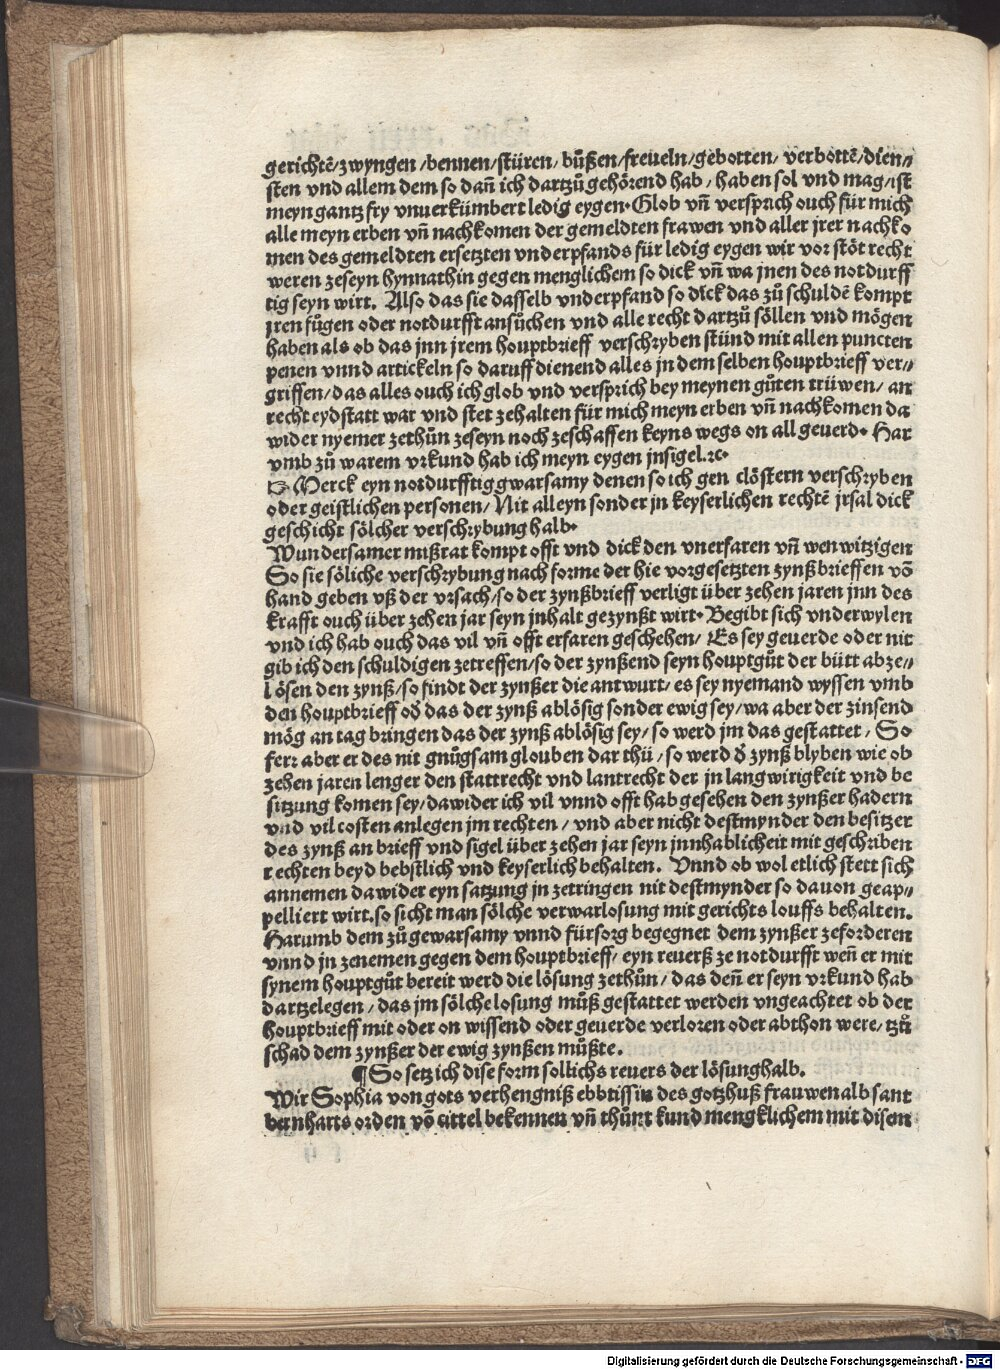 gerichtē/zwyngen/bennen/stüren/bůßen/freueln/gebotten/verbottē/dien⸗
sten vnd allem dem so dañ ich dartzů gehörend hab/haben sol vnd mag/ist
meyn gantz fry vnuerkümbert ledig eygen. Glob vñ versprich ouch für mich
alle meyn erben vñ nachkomen der gemeldten frawen vnd aller jrer nachko
men des gemeldten ersetzten vnderpfands für ledig eygen wir vor stöt recht
weren zeseyn hynnathin gegen menglichem so dick vñ wa jnen des notdurff
tig seyn wirt. Also das sie dasselb vnderpfand so dick das zů schuldē kompt
jren fůgen oder notdurfft ansůchen vnd alle recht dartzů söllen vnd mögen
haben als ob das jnn jrem houptbrieff verschryben stünd mit allen puncten
penen vnnd artickeln so daruff dienend alles jn dem selben houptbrieff ver⸗
griffen/das alles ouch ich glob vnd versprich bey meynen gůten trüwen/an
recht eydstatt war vnd stet zehalten für mich meyn erben vñ nachkomen da
wider nyemer zethůn zeseyn noch zeschaffen keyns wegs on all geuerd. Har
vmb zů warem vrkund hab ich meyn eygen jnsigel.⁊c.
☞ Merck eyn notdurfftig gwarsamy denen so ich gen clöstern verschryben
oder geistlichen personen/Nit alleyn sonder jn keyserlichen rechtē jrsal dick
geschicht sölcher verschrybung halb.
Wundersamer mißrat kompt offt vnd dick den vnerfaren vñ wenwitzigen
So sie söliche verschrybung nach forme der hie vorgesetzten zynßbrieffen vō
hand geben vß der vrsach/so der zynßbrieff verligt über zehen jaren jnn des
krafft ouch über zehen jar seyn jnhalt gezynßt wirt. Begibt sich vnderwylen
vnd ich hab ouch das vil vñ offt erfaren geschehen/Es sey geuerde oder nit
gib ich den schuldigen zetreffen/so der zynßend seyn houptgůt der bütt abze⸗
lösen den zynß/so findt der zynßer die antwurt/es sey nyemand wyssen vmb
den houptbrieff oð das der zynß ablösig sonder ewig sey/wa aber der zinsend
mög an tag bringen das der zynß ablösig sey/so werd jm das gestattet/So
ferr aber er des nit gnůgsam glouben dar thü/so werd ð zynß blyben wie ob
zehen jaren lenger den stattrecht vnd lantrecht der jn langwirigkeit vnd be
sitzung komen sey/dawider ich vil vnnd offt hab gesehen den zynßer hadern
vnd vil costen anlegen jm rechten/vnd aber nicht destmynder den besitzer
des zynß an brieff vnd sigel über zehen jar seyn jnnhablicheit mit geschriben
rechten beyd bebstlich vnd keyserlich behalten. Vnnd ob wol etlich stett sich
annemen dawider eyn satzung jn zetringen nit destmynder so dauon geap⸗
pelliert wirt.so sicht man sölche verwarlosung mit gerichts louffs behalten.
Harumb dem zů gewarsamy vnnd fürsorg begegnet dem zynßer zeforderen
vnnd jn zenemen gegen dem houptbrieff/eyn reuerß ze notdurfft weñ er mit
synem houptgůt bereit werd die lösung zethůn/das deñ er seyn vrkund hab
dartzelegen/das jm sölche losung můß gestattet werden vngeachtet ob der
houptbrieff mit oder on wissend oder geuerde verloren oder abthon were/tzů
schad dem zynßer der ewig zynßen můßte.
¶ So setz ich dise form sollichs reuers der lösunghalb.
Wir Sophia von gots verhengniß ebbtissin des gotzhuß frauwenalb sant
bernharts orden vō cittel bekennen vñ thůnt kund mengklichem mit disem
Digitalisierung gefördert durch die Deutsche Forschungsgemeinschaft - DFG